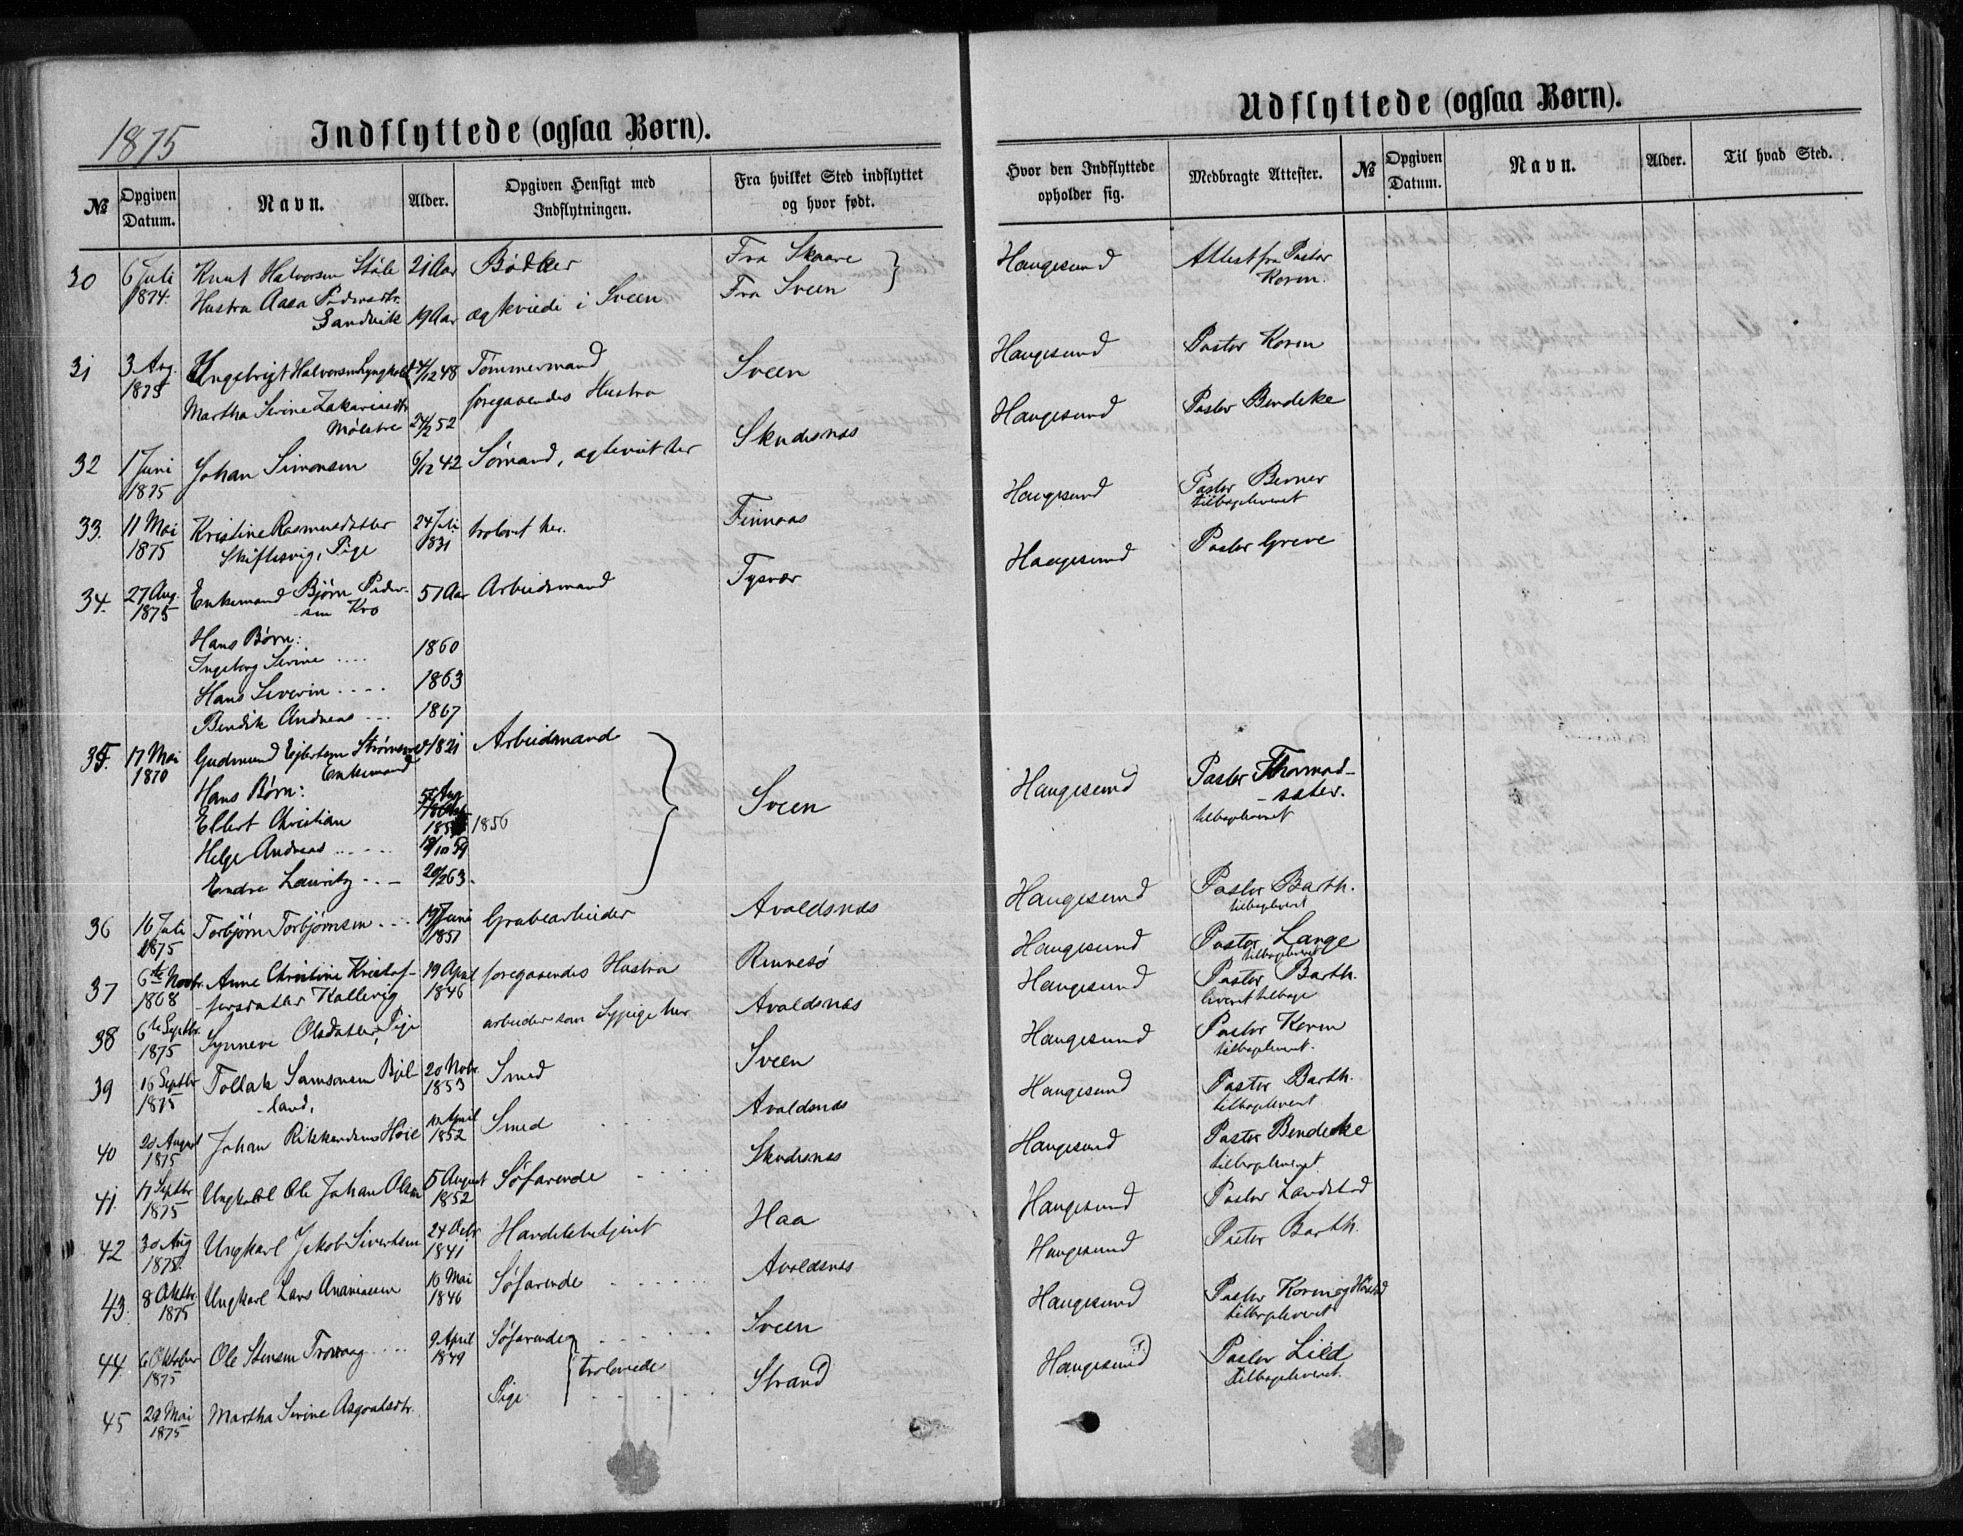 1875
Indflyttede (ogsaa Børn).
№ Opgiven Datum. Navn. Alder. Opgiven Hensigt med Indflytningen. Fra hvilket Sted indflyttet og hvor født.
30 6 Juli 1874. Knut Halvorsen Støle 21 Aar Bødker Fra Skaare
Hustru Aasa Pedersdtr. Sandvik 19 Aar ægteviede i Sveen Fra Sveen
31 3 Aug. 1875 Engebrigt Halvorsen 4/12 48 Tømmermand Sveen
Martha Serine Zakariasdtr Mølstre 24/2 52 foregaaendes Hustru
32 1 Juni 1875 Johan Simonsen 6/12 42 Sømand, ægteviet her Skudesnæs
33. 11 Mai 1875 Kristine Rasmusdatter 24 Juli 1831 trolovet her. Finnaas
Skiftesvig, Pige
34. 27 Aug. 1875 Enkemand Bjørn Peder- 51 Aar Arbeidsmand Tysvær
sen Kro
Hans Børn:
Ingeborg Serine .... 1860
Hans Severin .... 1863
Bendik Andreas ... 1867
35. 17 Mai 1870 Gudmund Ejlertsen 1821 Arbeidsmand
Enkemand
Hans Børn:
Ellert Christian 1856 Sveen
Helge Andreas ..... 18/10 59
Endre Lauritz .. 20/2 63.
36 16 Juli 1875 Torbjørn Torbjørnsen .... 19 Juni 1851 Grubearbeider Avaldsnæs
37 6te Novbr. 1868 Anne Christine Kristof- 19 April 1846 foregaaendes Hustru Rennesø
fersdatter Kallevig
38 6te Septbr. 1875 Synneve Olsdatter, Pige arbeider som Sypige her Avaldsnæs
39 16 Septbr 1875 Tollak Samsonsen Bjel- 20 Novbr. 1853 Smed Sveen
land,
40 20 August 1875 Johan Rikkardsen Høie April 1852 Smed Avaldsnæs
41. 17 Septbr 1875 Ungkarl Ole Johan Olsen 5 August 1852 Søfarende Skudesnæs
42 30 Aug 1875. Ungkarl Jakob Sivertsen 24 Octbr 1841 Handelsbetjent Haa
43. 8 Oktbr. 1875 Ungkarl Lars Ananiassen 16 Mai 1846 Søfarende Avaldsnæs
44. 6 Oktober 1875 Ole Stensen Trovaag .... 9 April 1849 Søfarende Sveen
trolovede
45 29 Mai 1875 Martha Serine Asgoutsdtr. Pige Strand
Udflyttede (ogsaa Børn).
Hvor den Indflyttede opholder sig. Medbragte Attester. № Opgiven Datum. Navn. Alder. Til hvad Sted.
Haugesund Attest fra Pastor
Koren.
Haugesund Pastor Koren
Haugesund Pastor Bendeke
Haugesund Pastor Berner
tilbageleveret
Haugesund Pastor Greve
Haugesund Pastor Thormod-
sæter.
tilbageleveret
Haugesund Pastor Barth.
tilbagelevert
Haugesund Pastor Lange
tilbageleveret
Haugesund Pastor Barth.
leveret tilbage
Haugesund Pastor Koren
tilbageleveret.
Haugesund Pastor Barth.
tilbageleveret
Haugesund Pastor Bendeke
tilbageleveret.
Haugesund Pastor Landstad
Haugesund Pastor Barth.
Haugesund Pastor Koren og
tilbageleveret
Haugesund Pastor Lied
tilbageleveret.